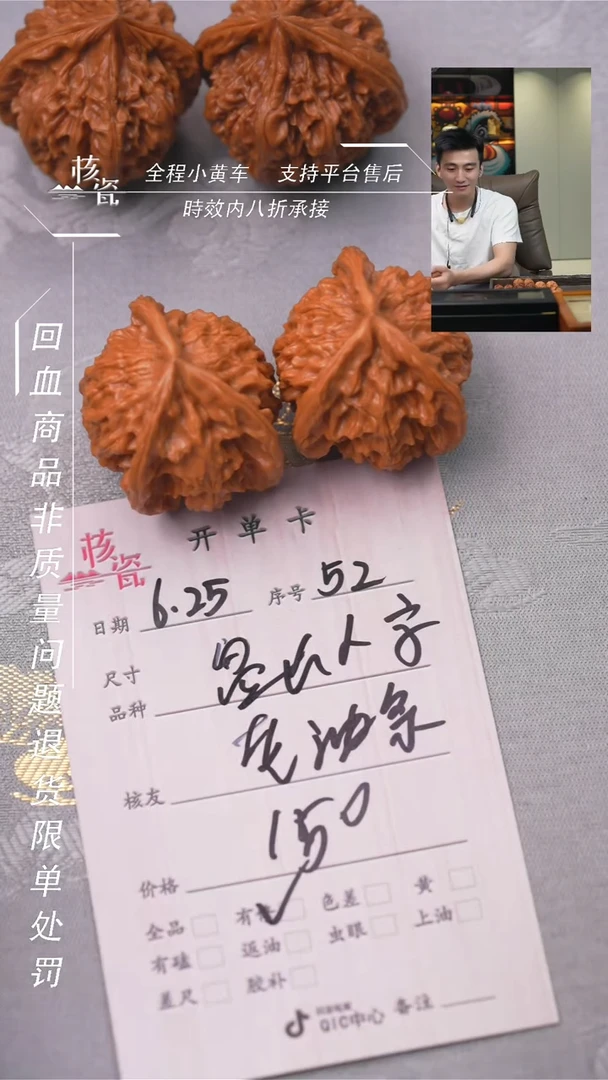 核瓷
全程小黄车 支持平台售后
時效内八折承接
回血商品非质量问题退货限单处罚
核瓷
开单卡
日期 6.25 序号 52
尺寸
品种
核友
150
价格
全品 有 色差 黄
有磕 返油 虫眼 上油
差尺 胶补
QIC中心 备注